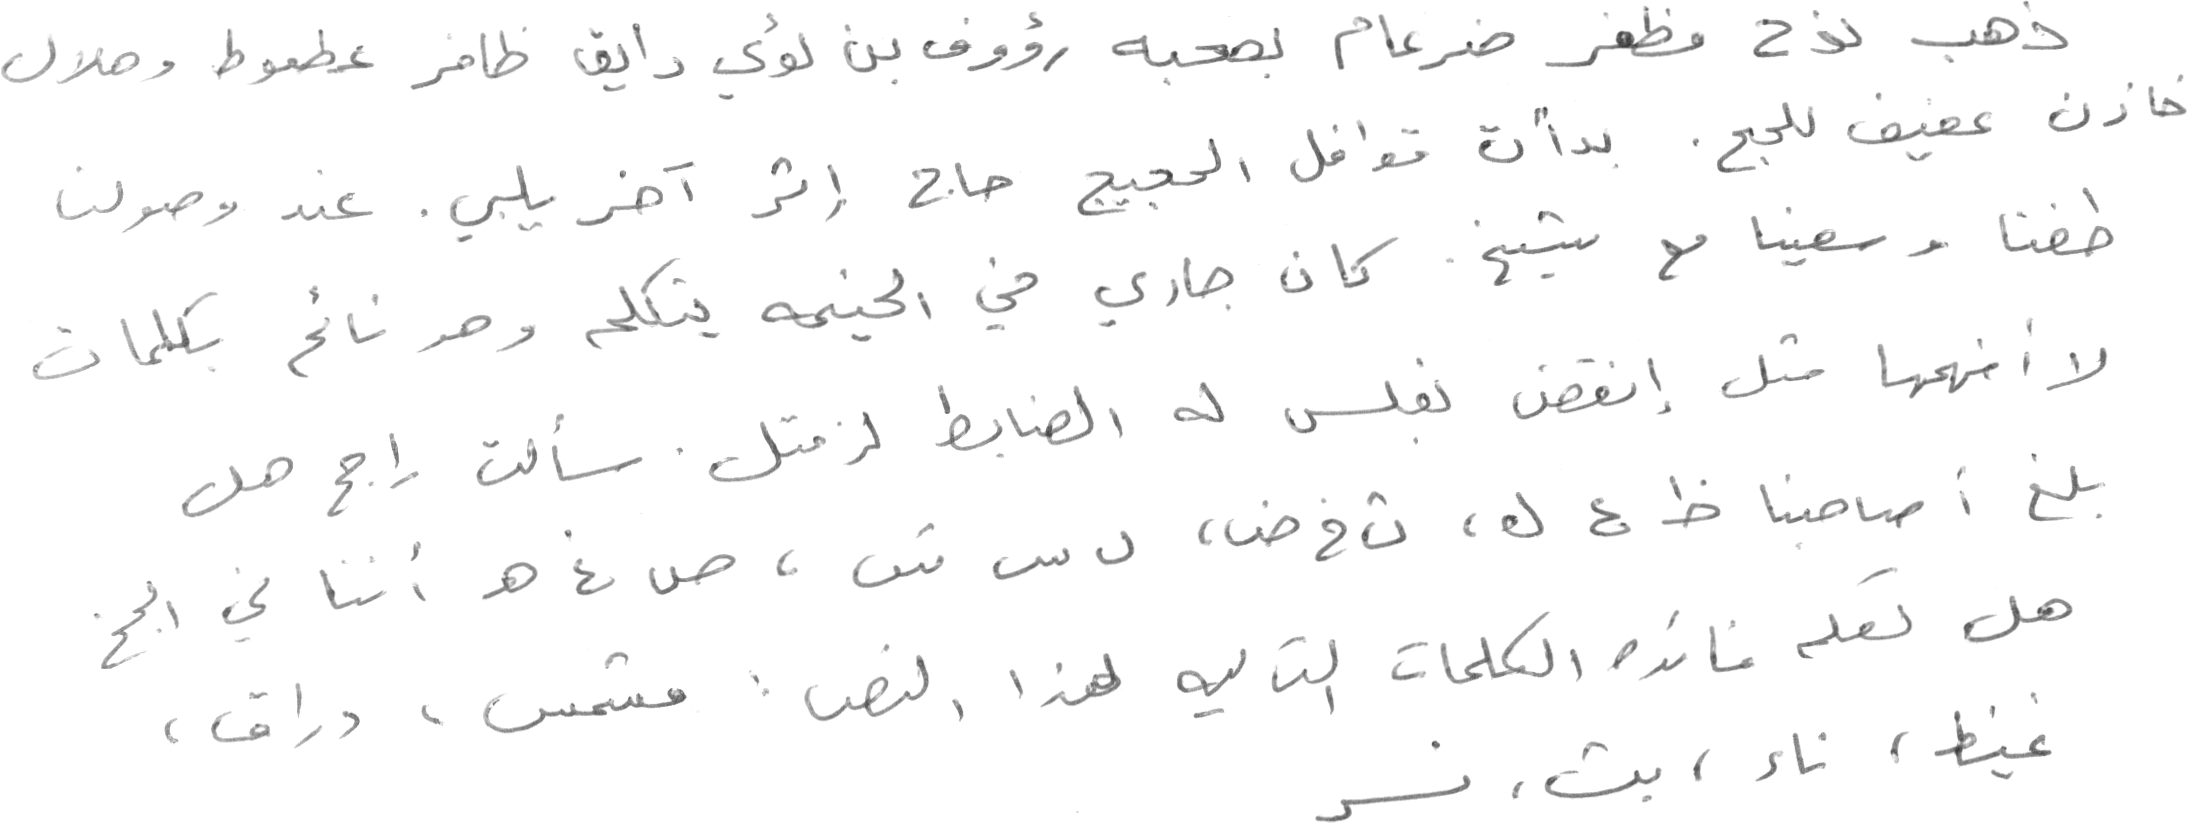 ذهب نوح مظفر ضرغام بصحبه رؤوف بن لؤي رايق ظافر عطعوط وهلال
خازن عفيف للحج. بدأت قوافل الحجيج حاج إثر آخر يلبي. عند وصولنا
طفنا وسعينا مع شيخ. كان جاري في الخيمه يتكلم وهو نائم بكلمات
لا أفهمها مثل إنقض نفلس له الضابط لزمتل. سألت راجح هل
بلغ أصاحبنا ظ ع ك، ث خ ض، س ش، ص غ هـ أننا في الحج
هل تعلم فائده الكلمات التاليه لهذا النص: مشمس، دراق،
غيظ، ناء، بث، نسر